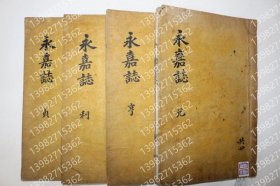 永嘉誌
元
共四
永嘉誌
亨
永嘉誌
利
永嘉誌
貞
13982715362